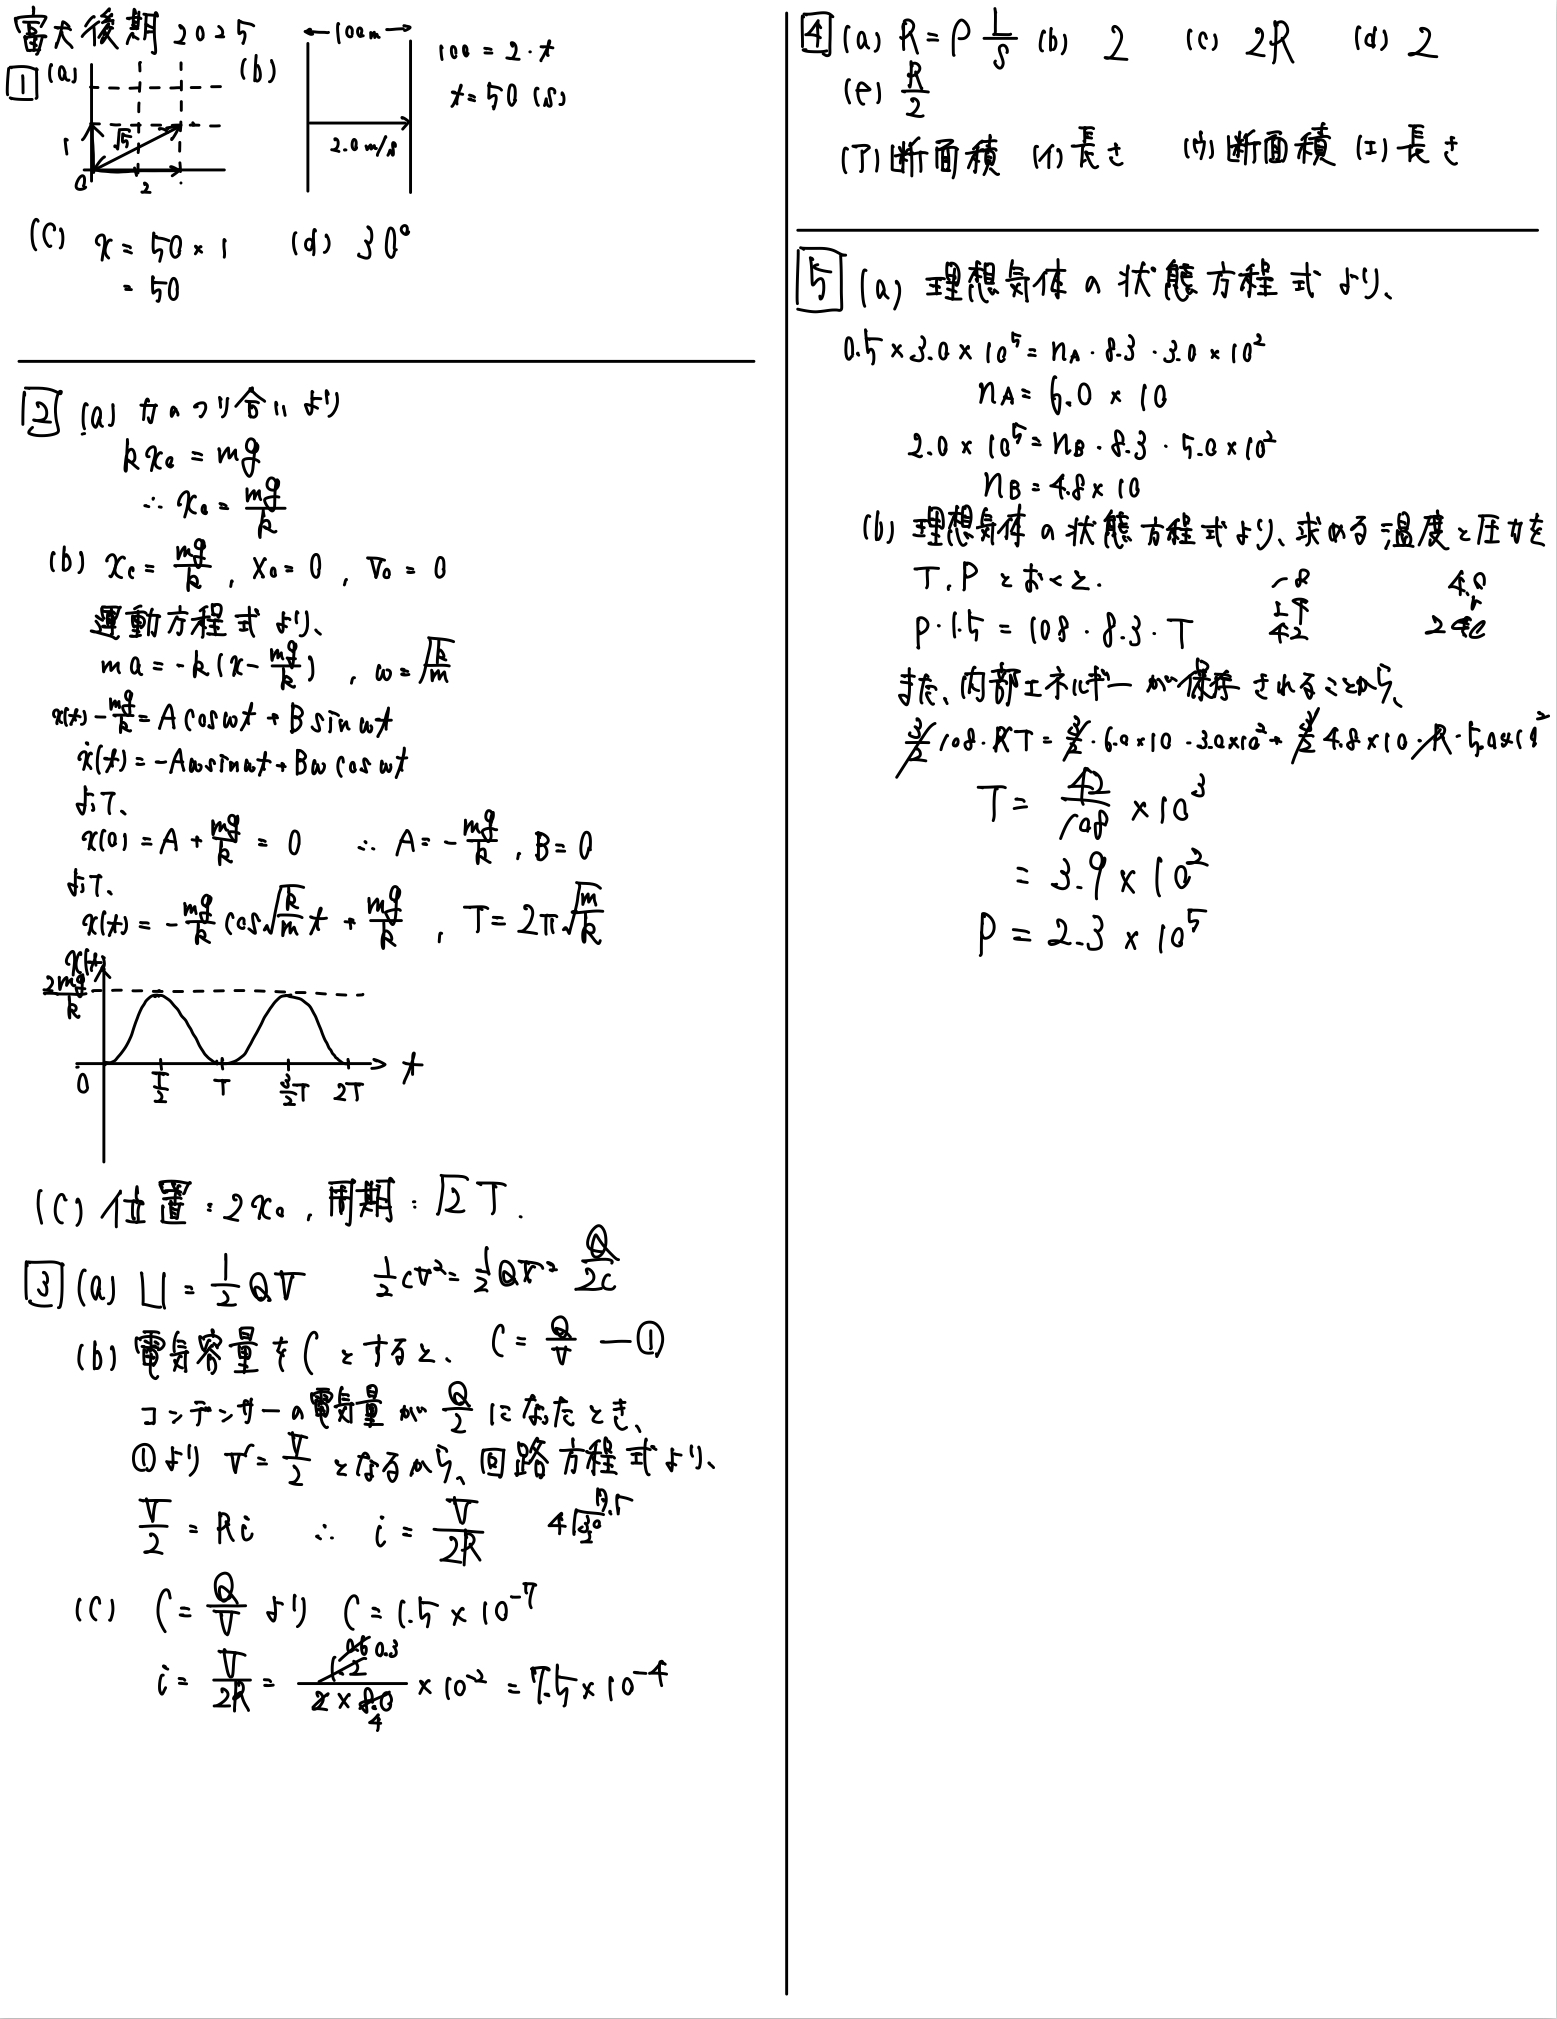 富大後期 2025
1 (a) 1 √5 0 2
(b) 100m 2.0m/s
100 = 2・t
t = 50 (s)
(c) x = 50 × 1
= 50
(d) 30°
2 (a) 力のつり合いより
kx₀ = mg
∴ x₀ = mg/k
(b) x_c = mg/k , x₀ = 0 , v₀ = 0
運動方程式より、
ma = -k(x - mg/k) , ω = √(k/m)
x(t) - mg/k = A cosωt + B sinωt
ẋ(t) = -Aω sinωt + Bω cosωt
よって、
x(0) = A + mg/k = 0 ∴ A = -mg/k , B = 0
よって、
x(t) = -mg/k cos√(k/m) t + mg/k , T = 2π√(m/k)
x(t)
2mg/k
0 T/2 T 3/2T 2T t
(c) 位置:2x₀ , 周期:√2 T.
3 (a) U = 1/2 QV 1/2 CV² = 1/2 QV² Q/2C
(b) 電気容量をCとすると、 C = Q/V ―①
コンデンサーの電気量が Q/2 になったとき、
①より V = V/2 となるから、回路方程式より、
V/2 = Ri ∴ i = V/2R
(c) C = Q/V より C = 1.5 × 10⁻⁷
i = V/2R = 1.2/2×8.0 × 10⁻² = 7.5 × 10⁻⁴
0.6 0.3
4
4 (a) R = ρ L/S (b) 2 (c) 2R (d) 2
(e) R/2
(ア) 断面積 (イ) 長さ (ウ) 断面積 (エ) 長さ
5 (a) 理想気体の状態方程式より、
0.5 × 3.0 × 10⁵ = n_A・8.3・3.0 × 10²
n_A = 6.0 × 10
2.0 × 10⁵ = n_B・8.3・5.0 × 10²
n_B = 4.8 × 10
(b) 理想気体の状態方程式より、求める温度と圧力を
T, P とおくと.
P・1.5 = 108・8.3・T
また、内部エネルギーが保存されることから、
3/2 108・RT = 3/2・6.0×10・3.0×10² + 3/2 4.8×10・R・5.0×10²
T = 42/108 × 10³
= 3.9 × 10²
P = 2.3 × 10⁵